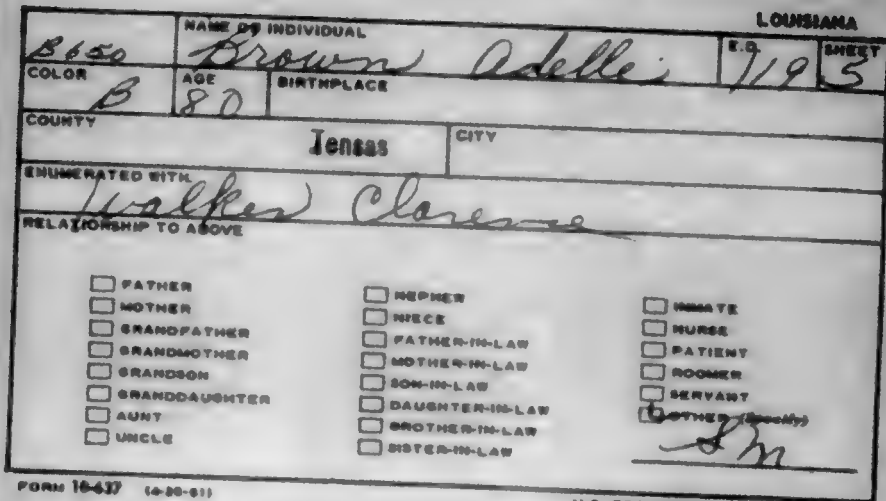 LOUISIANA
NAME OF INDIVIDUAL E.D. SHEET
B650 Brown Adelle 119 5
COLOR AGE BIRTHPLACE
B 80
COUNTY Tensas CITY
ENUMERATED WITH
Walker Clarence
RELATIONSHIP TO ABOVE
FATHER
MOTHER
GRANDFATHER
GRANDMOTHER
GRANDSON
GRANDDAUGHTER
AUNT
UNCLE
NEPHEW
NIECE
FATHER-IN-LAW
MOTHER-IN-LAW
SON-IN-LAW
DAUGHTER-IN-LAW
BROTHER-IN-LAW
SISTER-IN-LAW
INMATE
NURSE
PATIENT
ROOMER
SERVANT
OTHER (Specify)
SM
FORM 10-637 (4-20-61)